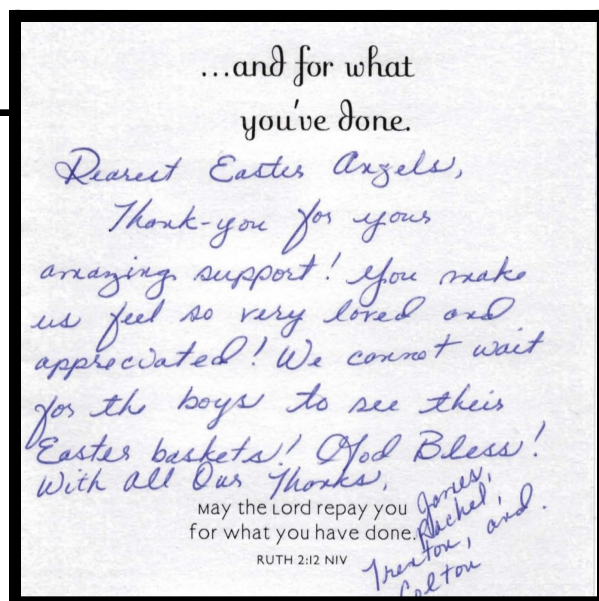 ...and for what
you've done.
Dearest Easter Angels,
Thank-you for your
amazing support! You make
us feel so very loved and
appreciated! We cannot wait
for the boys to see their
Easter baskets! God Bless!
With All Our Thanks,
James,
Rachel,
Trenton, and
Colton
May the Lord repay you
for what you have done.
RUTH 2:12 NIV